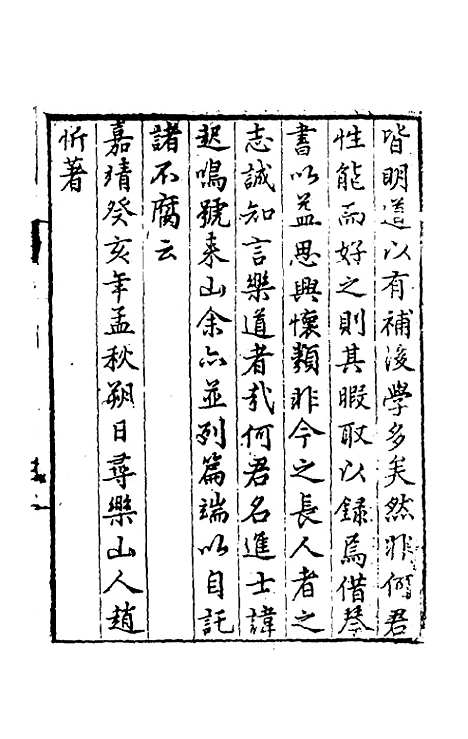 皆明道以有補後學多矣然非何君
性能而好之則其暇取以録焉借琴
書以益思與懷類非今之長人者之
志誠知言樂道者㢤何君名進士諱
起鳴號來山余亦並列篇端以自託
諸不腐云
嘉靖癸亥年孟秋朔日尋樂山人趙
忻著